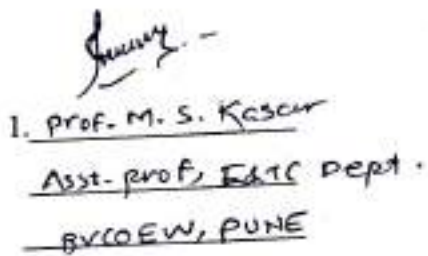 1. Prof. M. S. Kasar
Asst. prof, E&TC Dept.
BVCOEW, PUNE